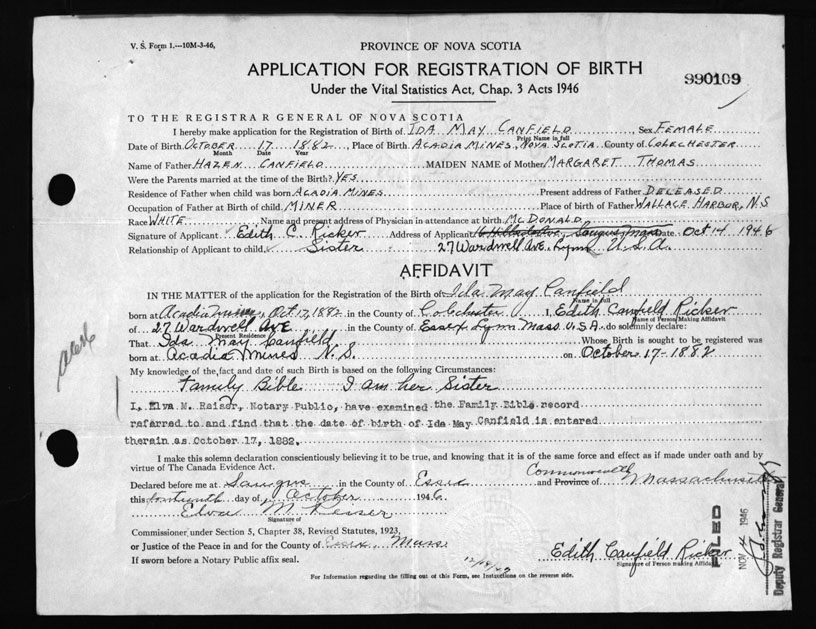 V. S. Form 1.—10M-3-46,
PROVINCE OF NOVA SCOTIA
APPLICATION FOR REGISTRATION OF BIRTH
990109
Under the Vital Statistics Act, Chap. 3 Acts 1946
TO THE REGISTRAR GENERAL OF NOVA SCOTIA
I hereby make application for the Registration of Birth of IDA MAY CANFIELD, Sex FEMALE
Print Name in full
Date of Birth OCTOBER 17 1882, Place of Birth ACADIA MINES, NOVA SCOTIA County of COLECHESTER
Month Date Year
Name of Father HAZEN CANFIELD MAIDEN NAME of Mother MARGARET THOMAS
Were the Parents married at the time of the Birth? YES
Residence of Father when child was born ACADIA MINES Present address of Father DECEASED
Occupation of Father at Birth of child MINER Place of birth of Father WALLACE HARBOR, N.S
Race WHITE Name and present address of Physician in attendance at birth McDONALD
Signature of Applicant Edith C. Ricker Address of Applicant Saugus, Mass Date Oct 14 1946
Relationship of Applicant to child Sister 27 Wardwell Ave. Lynn U.S.A.
AFFIDAVIT
IN THE MATTER of the application for the Registration of the Birth of Ida May Canfield
Name in full
born at Acadia Mines, Oct 17, 1882 in the County of Colchester I, Edith Canfield Ricker
Name of Person Making Affidavit
of 27 Wardwell Ave in the County of Essex Lynn Mass. U.S.A. do solemnly declare:
Present Residence
That Ida May Canfield Whose Birth is sought to be registered was
born at Acadia Mines N.S. on October 17-1882
My knowledge of the fact and date of such Birth is based on the following Circumstances:
Family Bible I am her Sister
I, Elva M. Reiser, Notary Public, have examined the Family Bible record
referred to and find that the date of birth of Ida May Canfield is entered
therein as October 17, 1882.
I make this solemn declaration conscientiously believing it to be true, and knowing that it is of the same force and effect as if made under oath and by
virtue of The Canada Evidence Act.
Declared before me at Saugus in the County of Essex and Province of Commonwealth Massachusetts
this fourteenth day of October 1946.
Elva M Reiser
Signature of
Commissioner, under Section 5, Chapter 38, Revised Statutes, 1923,
or Justice of the Peace in and for the County of Essex, Mass.
If sworn before a Notary Public affix seal.
Edith Canfield Ricker
Signature of Person making Affidavit
For Information regarding the filling out of this Form, see Instructions on the reverse side.
FILED
NOV 4 1946
Deputy Registrar General